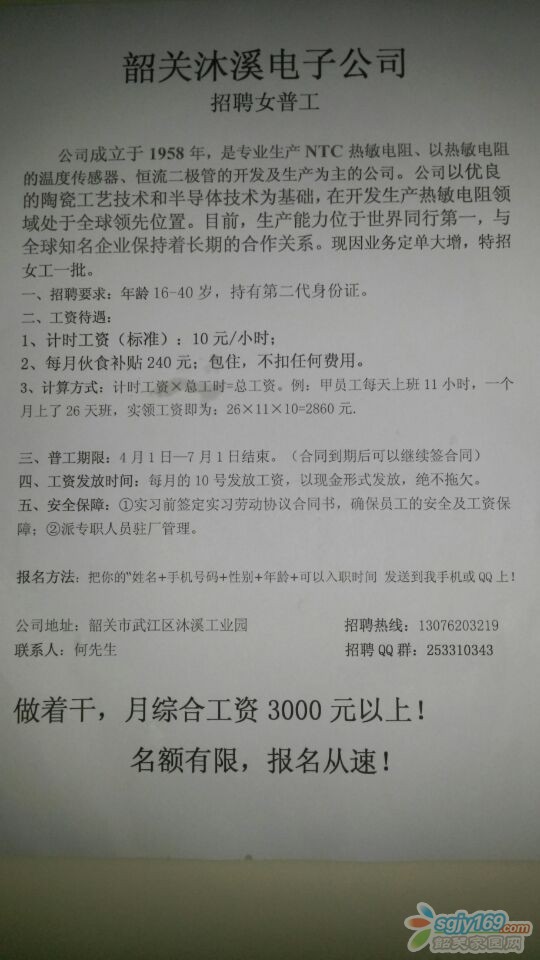 韶关沐溪电子公司
招聘女普工
公司成立于 1958 年，是专业生产 NTC 热敏电阻、以热敏电阻
的温度传感器、恒流二极管的开发及生产为主的公司。公司以优良
的陶瓷工艺技术和半导体技术为基础，在开发生产热敏电阻领
域处于全球领先位置。目前，生产能力位于世界同行第一，与
全球知名企业保持着长期的合作关系。现因业务定单大增，特招
女工一批。
一、招聘要求：年龄 16-40 岁，持有第二代身份证。
二、工资待遇：
1、计时工资（标准）：10 元/小时；
2、每月伙食补贴 240 元；包住，不扣任何费用。
3、计算方式：计时工资×总工时=总工资。例：甲员工每天上班 11 小时，一个
月上了 26 天班，实领工资即为：26×11×10=2860 元.
三、普工期限：4 月 1 日—7 月 1 日结束。（合同到期后可以继续签合同）
四、工资发放时间：每月的 10 号发放工资，以现金形式发放，绝不拖欠。
五、安全保障：①实习前签定实习劳动协议合同书，确保员工的安全及工资保
障；②派专职人员驻厂管理。
报名方法：把你的"姓名+手机号码+性别+年龄+可以入职时间 发送到我手机或QQ上！
公司地址：韶关市武江区沐溪工业园 招聘热线：13076203219
联系人：何先生 招聘 QQ 群：253310343
做着干，月综合工资 3000 元以上！
名额有限，报名从速！
sgjy169.com
韶关家园网